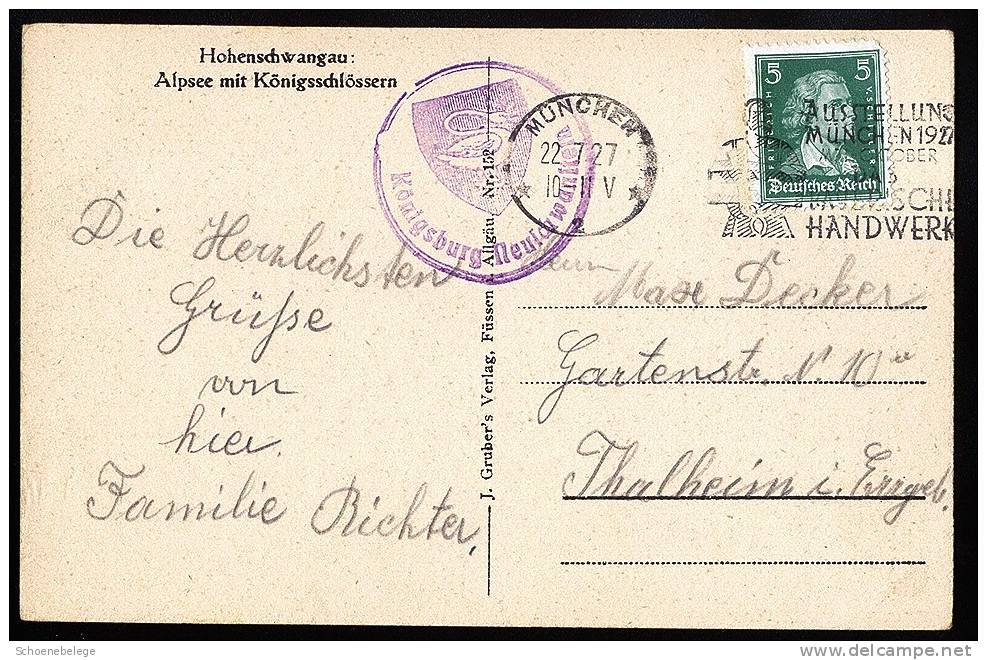 Hohenschwangau:
Alpsee mit Königsschlössern
Königsburg Neuschwanstein
Die Herzlichsten
Grüsse
von
hier.
Familie Richter,
J. Gruber's Verlag, Füssen i. Allgäu Nr. 152
MÜNCHEN
22 7 27
10-11 V
2
5 5
FRIEDRICH V. SCHILLER
Deutsches Reich
AUSSTELLUNG
MÜNCHEN 1927
OKTOBER
DAS
BAYERISCHE
HANDWERK
Max Decker
Gartenstr. N. 10
Thalheim i. Erzgeb.
Schoenebelege
delcampe.net